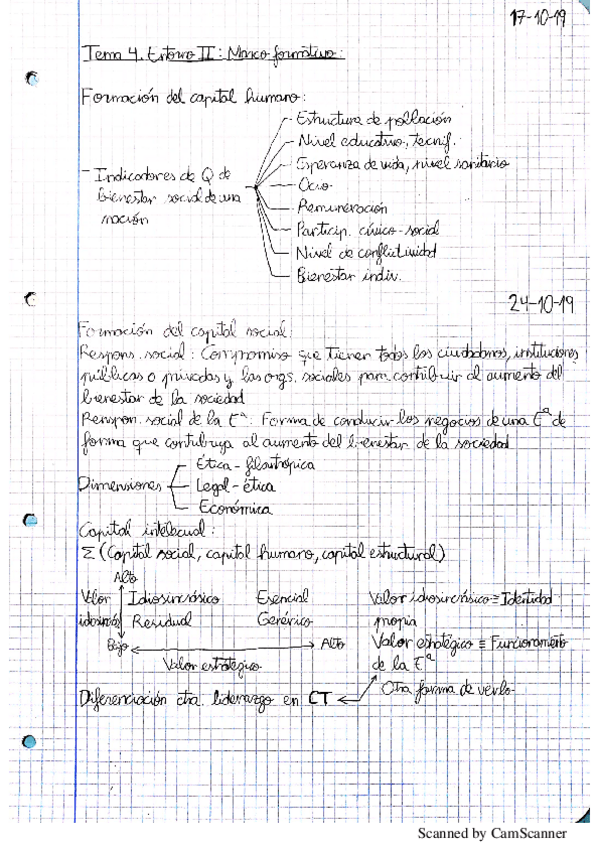 17-10-19
Tema 4. Entorno II: Marco formativo:
Formación del capital humano:
- Indicadores de Q de
bienestar social de una
nación
Estructura de población
Nivel educativo, tecnif.
Esperanza de vida, nivel sanitario
Ocio
Remuneración
Particip. cívico-social
Nivel de conflictividad
Bienestar indiv.
24-10-19
Formación del capital social:
Respons. social: Compromiso que tienen todos los ciudadanos, instituciones
públicas o privadas y las orgs. sociales para contribuir al aumento del
bienestar de la sociedad
Respon. social de la Eª: Forma de conducir los negocios de una Eª de
forma que contribuya al aumento del bienestar de la sociedad
Dimensiones
Ética - filantrópica
Legal - ética
Económica
Capital intelecual:
Σ (Capital social, capital humano, capital estructural)
Alto
Valor
Idiosincrásico Esencial
Residual Genérico
Bajo Alto
Valor estratégico
Valor idiosincrásico ≡ Identidad
propia
Valor estratégico ≡ Funcionamiento
de la Eª
Otra forma de verlo
Diferenciación ctra. liderazgo en CT
Scanned by CamScanner